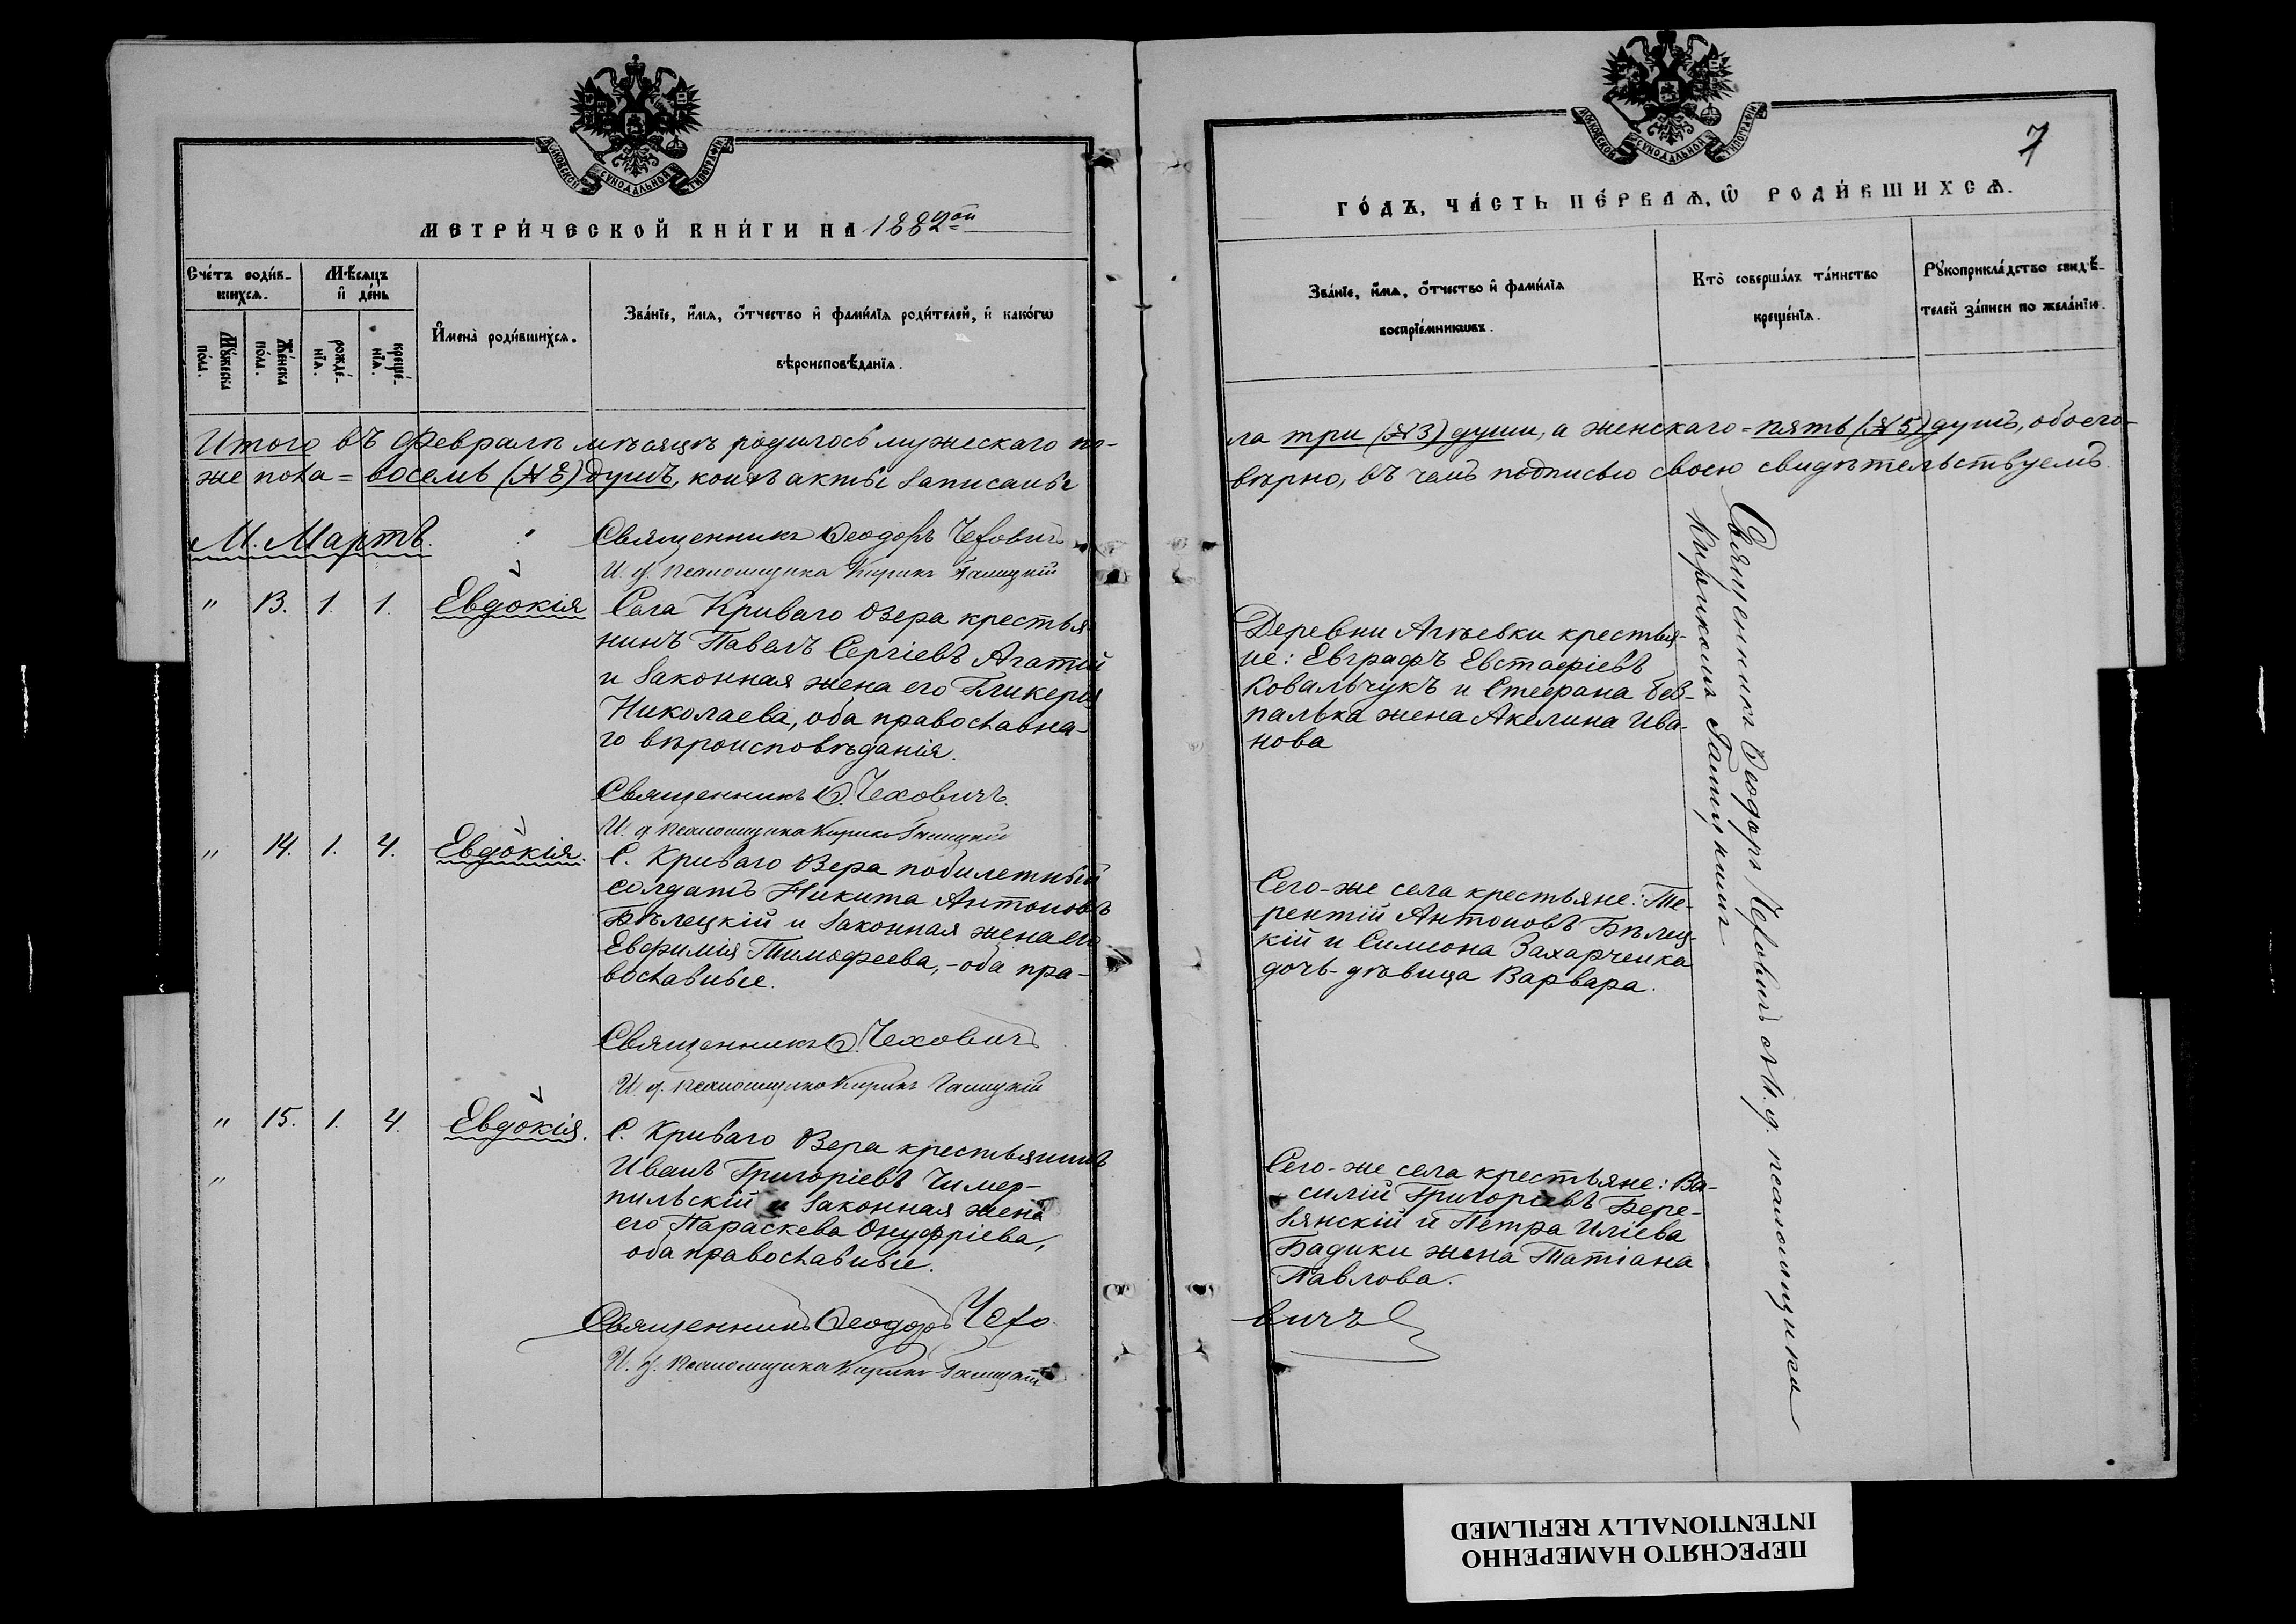 МОСКОВСКОЙ СѴНОДАЛЬНОЙ ТИПОГРАФІИ
МЕТРИ́ЧЕСКОЙ КНИ́ГИ НА 1882ой
Сче́тъ роди́в-
шихсѧ.
Мѣ́сѧцъ
и҆ де́нь
Мꙋ́жеска
по́ла.
Же́нска
по́ла.
рожде́-
нїѧ.
креще́-
нїѧ.
И҆мена̀ роди́вшихсѧ.
Зва́нїе, и҆́мѧ, ѻ҆́тчество и҆ фами́лїѧ роди́телей, и҆ како́гѡ
вѣроисповѣ́данїѧ.
Итого въ Февралѣ мѣсяцѣ родилось мужескаго по-
же пола = восемь (№ 8) душъ, коихъ акты записаны
М. Мартъ.
Священникъ Ѳеодоръ Чеховичъ
И. д. псаломщика Кирикъ Галицкій
" 13. 1. 1. Евдокія
Села Криваго Озера крестья-
нинъ Павелъ Сергіевъ Агатій
и законная жена его Гликерія
Николаева, оба православна-
го вѣроисповѣданія.
Священникъ Ѳ. Чеховичъ.
И. д. псаломщика Кирикъ Галицкій
" 14. 1. 4. Евдокія.
С. Криваго Озера побилетный
солдатъ Никита Антоновъ
Бѣлецкій и законная жена его
Евфимія Тимофеева, - оба пра-
вославные.
Священникъ Ѳ. Чеховичъ
И. д. псаломщика Кирикъ Галицкій
" 15. 1. 4. Евдокія.
"
С. Криваго Озера крестьянинъ
Иванъ Григоріевъ Чимер-
пильскій и законная жена
его Параскева Онуфріева,
оба православные.
Священникъ Ѳеодоръ Чехо-
И. д. псаломщика Кирикъ Галицкій
МОСКОВСКОЙ СѴНОДАЛЬНОЙ ТИПОГРАФІИ
7
ГО́ДЪ, ЧА́СТЬ ПЕ́РВАѦ, Ѡ҆ РОДИ́ВШИХСѦ.
Зва́нїе, и҆́мѧ, ѻ҆́тчество и҆ фами́лїѧ
воспрїе́мникѡвъ.
Кто̀ соверша́лъ та́инство
креще́нїѧ.
Рꙋкоприкла́дство свидѣ́-
телей за́писи по жела́нїю.
ла три (№ 3) души, а женскаго = пять (№ 5) душъ, обоего-
вѣрно, въ чемъ подписью своею свидѣтельствуемъ.
Деревни Агѣевки крестья-
не: Евграфъ Евстафіевъ
Ковальчукъ и Стефана Без-
палька жена Акелина Ива-
нова
Сего-же села крестьяне: Те-
рентій Антоновъ Бѣлец-
кій и Симеона Захарченка
дочь-дѣвица Варвара.
Сего-же села крестьяне: Ва-
силій Григоріевъ Бере-
зянскій и Петра Иліева
Бадики жена Татіана
Павлова.
вичъ
Священникъ Ѳеодоръ Чеховичъ съ И. д. псаломщика
Кирикомъ Галицкимъ
ПЕРЕСНЯТО НАМЕРЕННО
INTENTIONALLY REFILMED